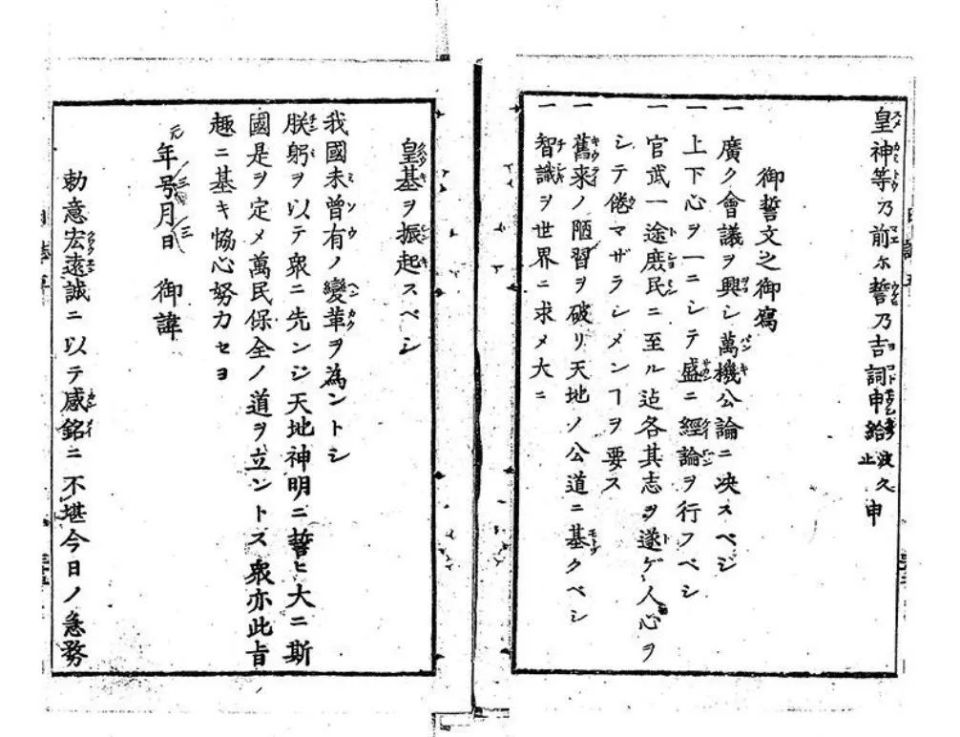 皇神等乃前尓誓乃吉詞申給波久止申
御誓文之御寫
一 廣ク會議ヲ興シ萬機公論ニ决スベシ
一 上下心ヲ一ニシテ盛ニ經論ヲ行フベシ
一 官武一途庶民ニ至ル迠各其志ヲ遂ゲ人心ヲ
シテ倦マザラシメンヿヲ要ス
一 舊来ノ陋習ヲ破リ天地ノ公道ニ基クベシ
一 智識ヲ世界ニ求メ大ニ
皇基ヲ振起スベシ
我國未曾有ノ變革ヲ為ントシ
朕躬ヲ以テ衆ニ先ンジ天地神明ニ誓ヒ大ニ斯
國是ヲ定メ萬民保全ノ道ヲ立ントス衆亦此旨
趣ニ基キ恊心努力セヨ
元年号月日 御諱
勅意宏遠誠ニ以テ感銘ニ不堪今日ノ急務